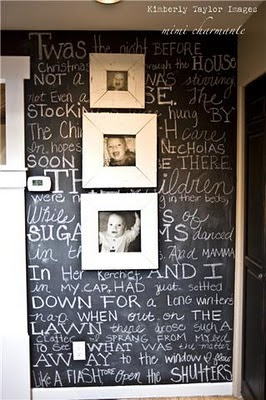 Kimberly Taylor Images
mimi charmante
Twas the night BEFORE
Christmas through the HOUSE
NOT A WAS stirring
not Even a SE. The
STOCKIN hung BY
The Ch CARE
In hopes NICHOLAS
SOON BE THERE.
TH Children
were ne in their beds,
While S of
SUGA MS danced
in th And MAMMA
In Her Kerchief, AND I
in my CAP, HAD just settled
DOWN FOR a long winters
nap WHEN out on THE
LAWN there arose such A
Clatter I SPRANG FROM My bed
TO See WHAT WAS the matter
AWAY TO the window I flew
Like A FLASH tore Open the SHUTTERS